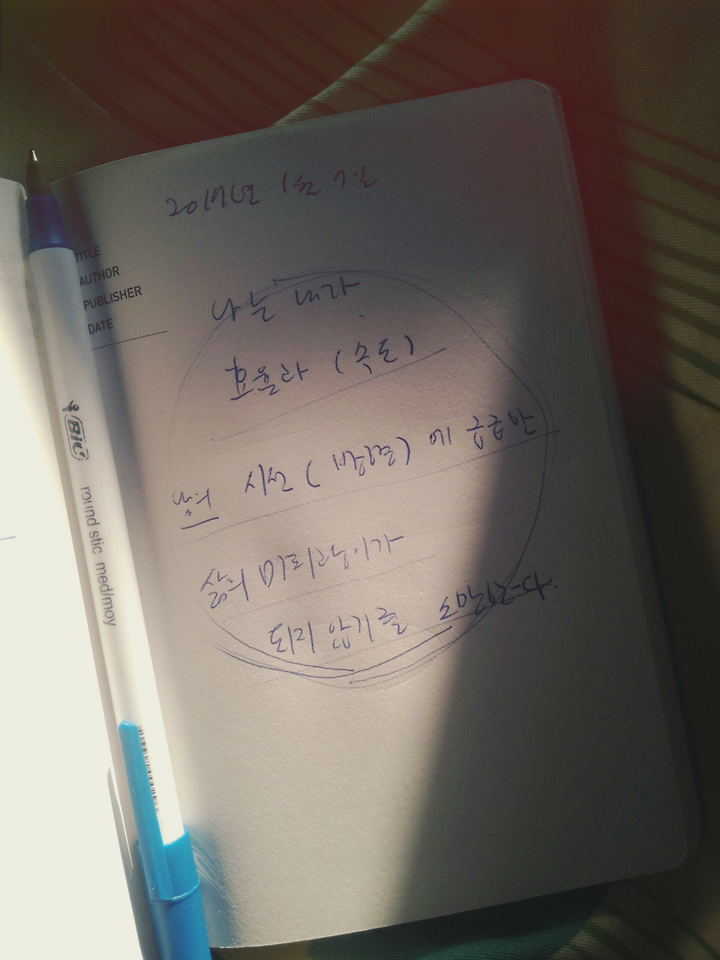 2017년 1월 7일
TITLE
AUTHOR
PUBLISHER
DATE
나는 내가
효율과 (속도)
남의 시선 (방향) 에 급급한
삶의 미치광이가
되지 않기를 소망한다.
BIC
round stic med/moy